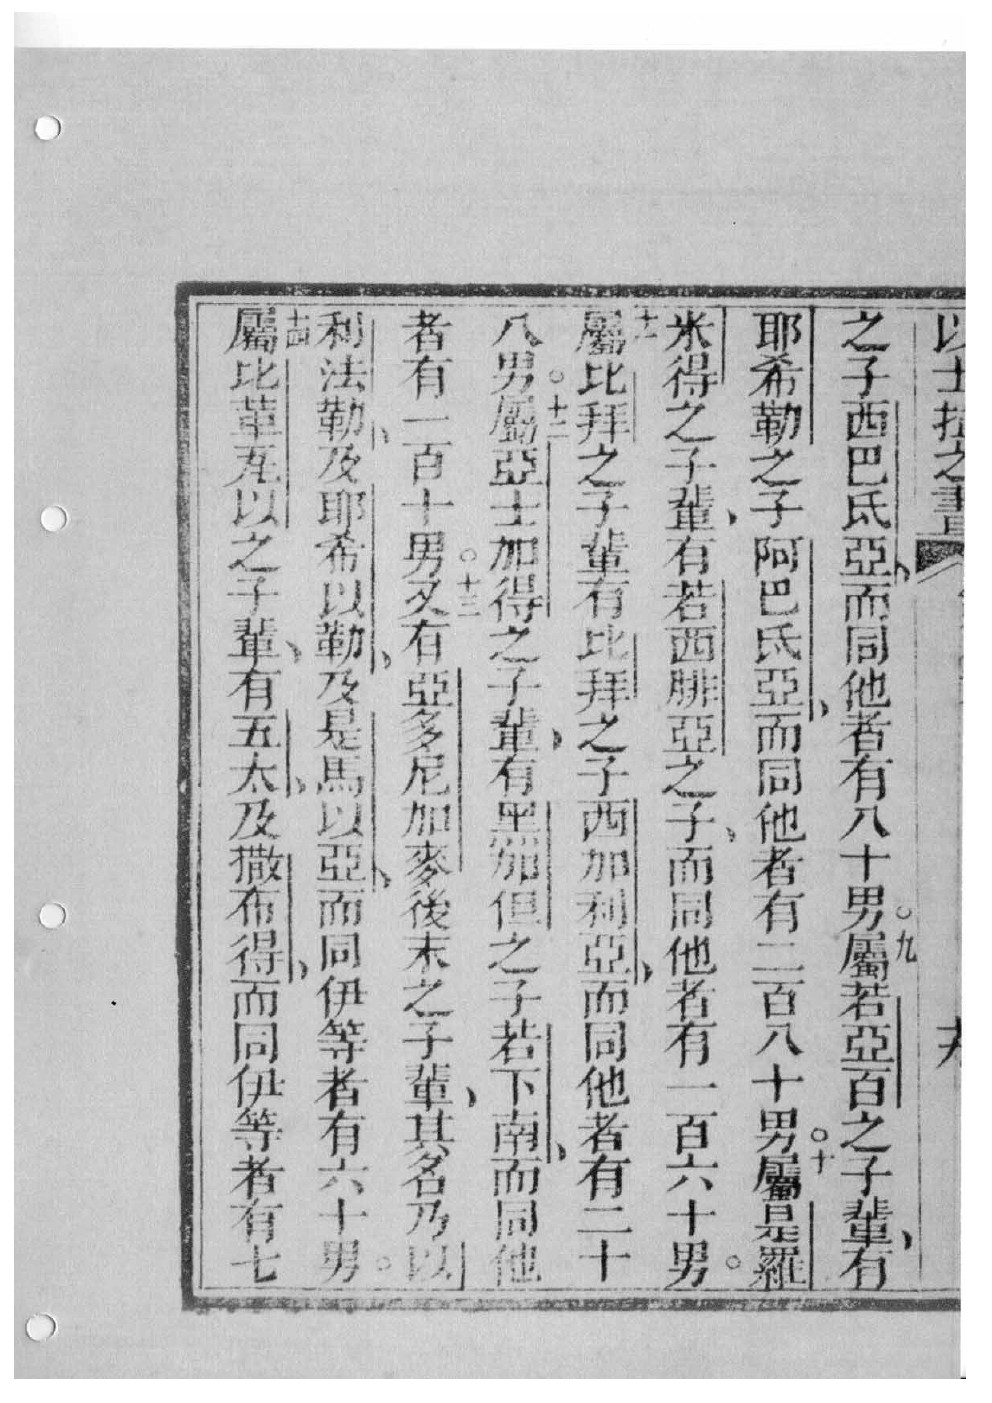 以士拉之書
之子西巴氐亞而同他者有八十男。九屬若亞百之子輩、有
耶希勒之子阿巴氐亞、而同他者有二百八十男。十屬是羅
米得之子輩、有若西腓亞之子、而同他者有一百六十男。
十一屬比拜之子輩有比拜之子西加利亞、而同他者有二十
八男。十二屬亞士加得之子輩、有黑加但之子若下南、而同他
者有一百十男。十三又有亞多尼加麥後末之子輩、其名乃以
利法勒、及耶希以勒、及是馬以亞、而同伊等者有六十男。
十四屬比革瓦以之子輩、有五太、及撒布得、而同伊等者有七